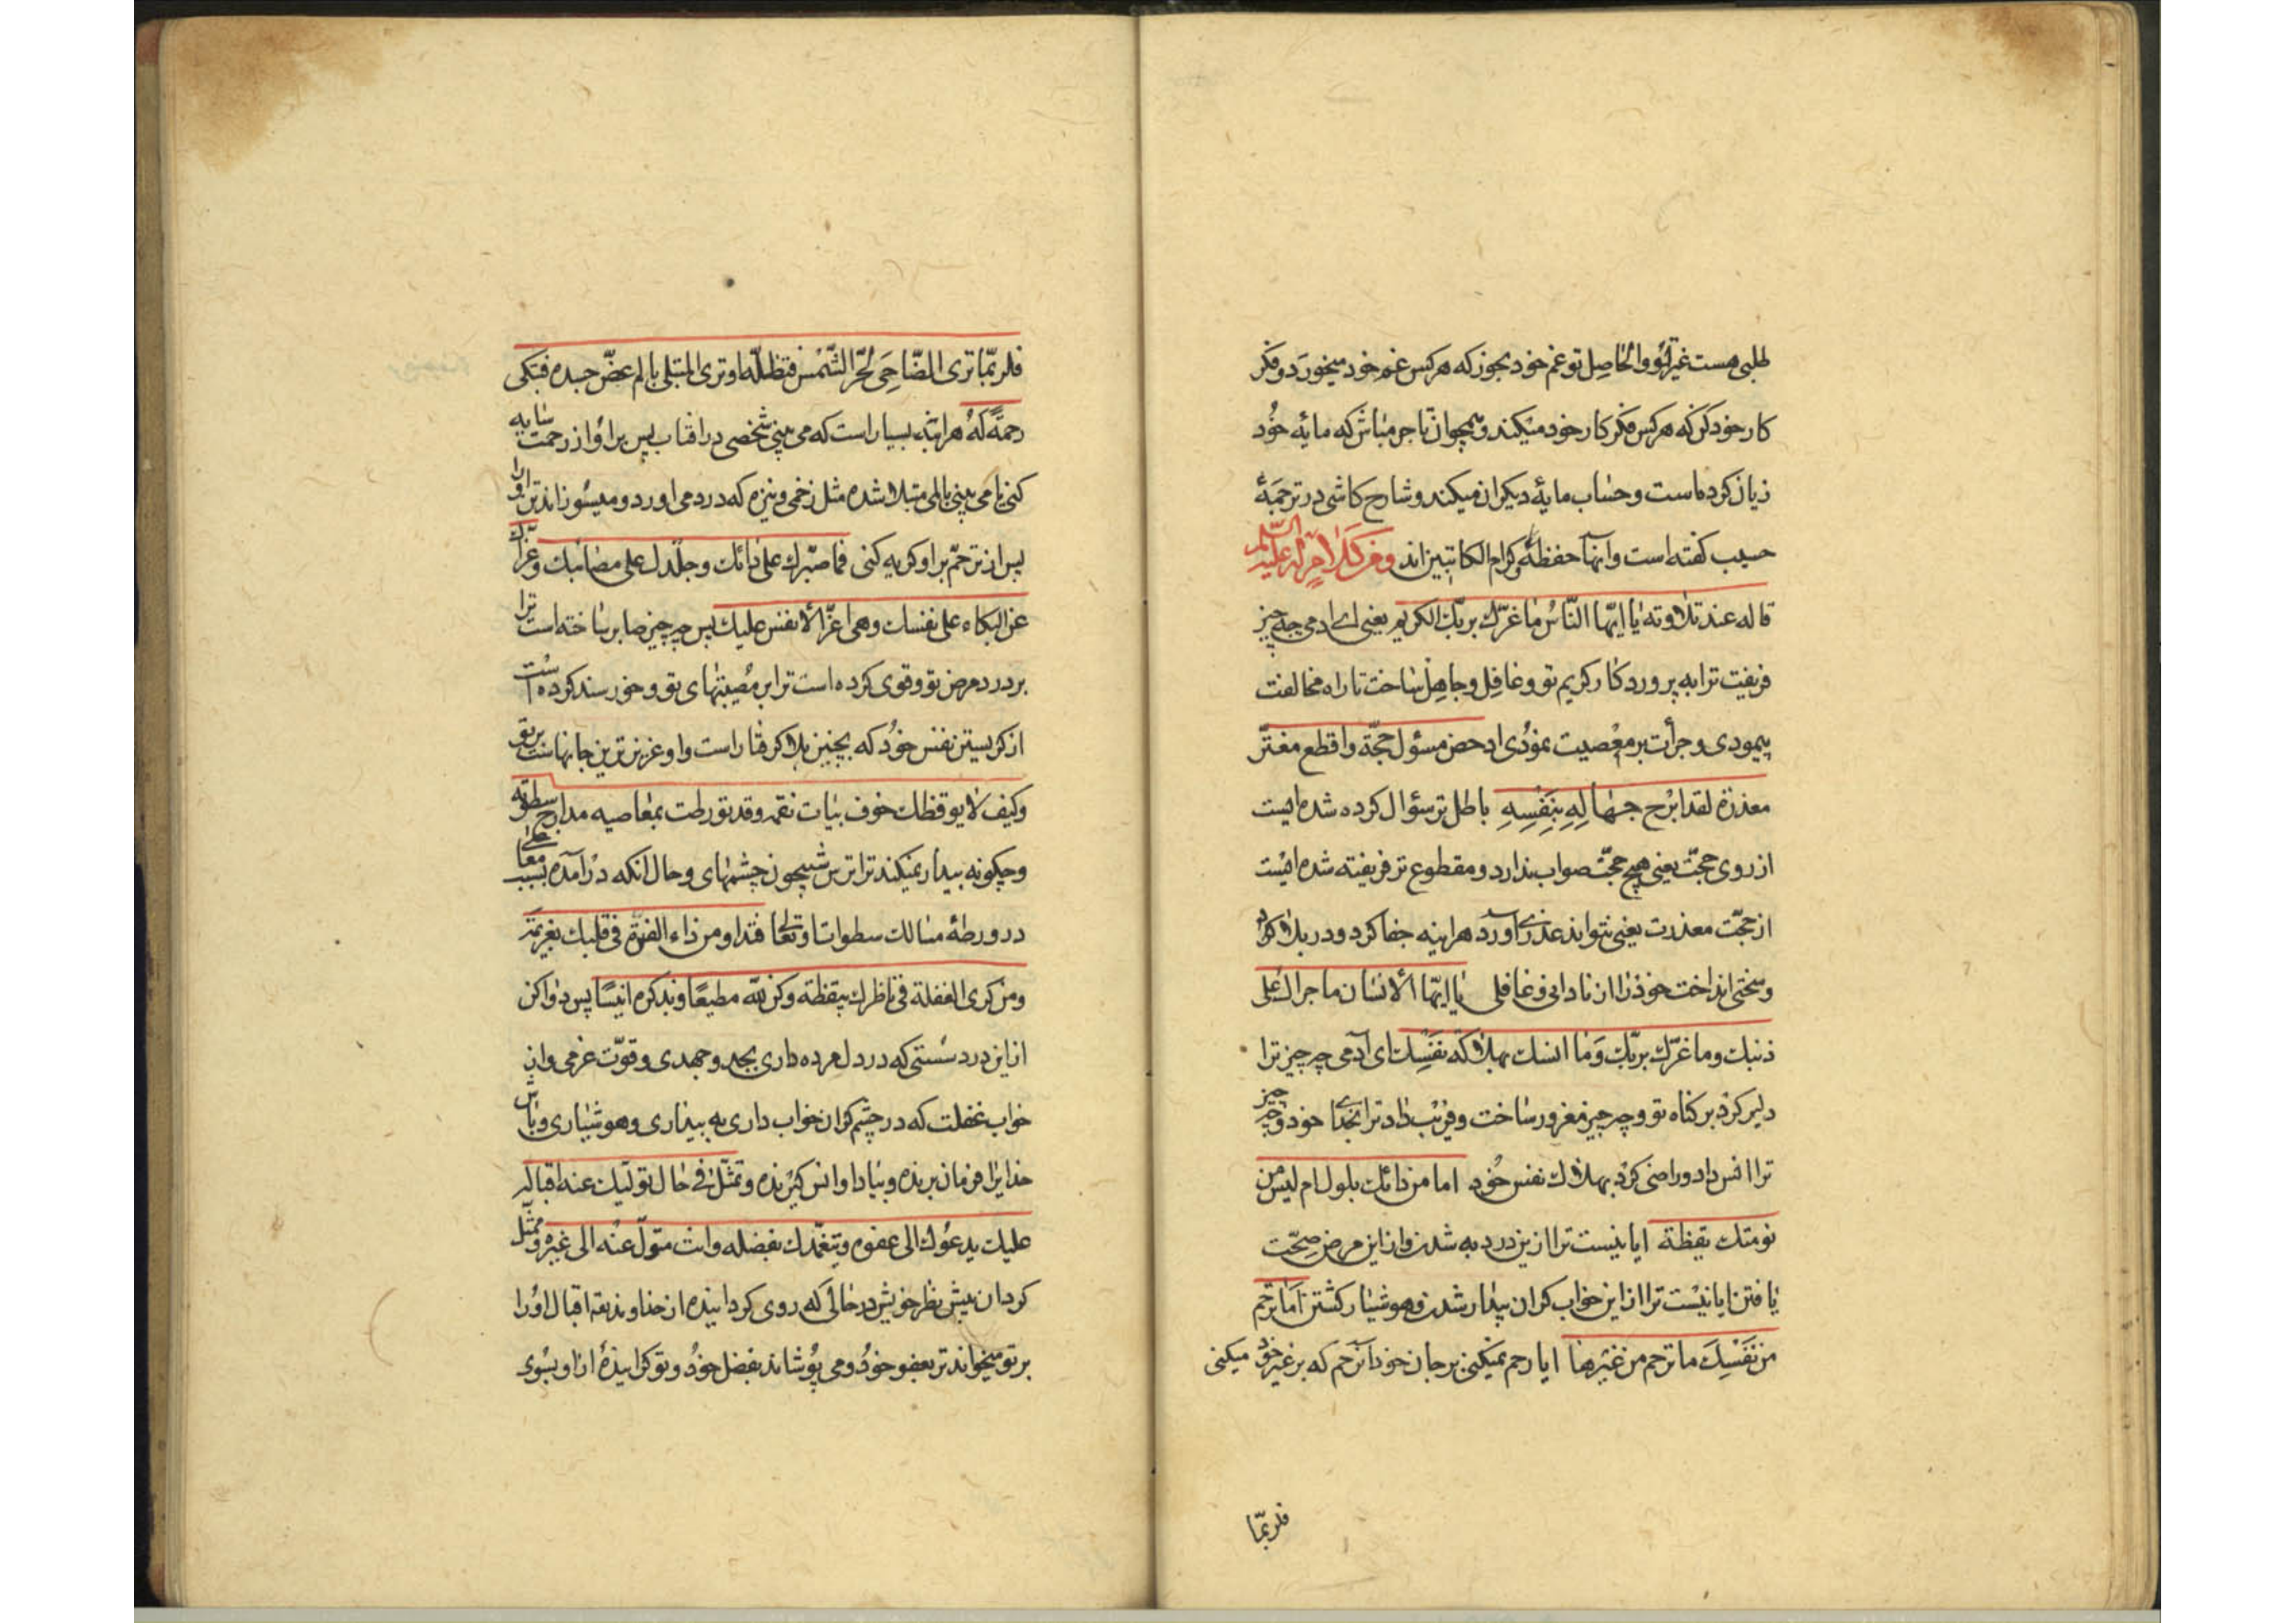 طلبی هست غیر تو والحاصل تو غم خود بخور که هرکس غم خود میخورد و فکر
کار خود کن که هرکس فکر کار خود میکند و همچو آن تاجر مباش که مایهٔ خود
زیان کرده است و حساب مایهٔ دیکران میکند و شارح کاشی در ترجمهٔ
حسیب کفته است و آنها حفظهٔ و کرام الکاتبین اند و من کلام له علیه السلم
قاله عند تلاوته یا ایّها النّاسُ ما غرّك بربّك الکریم یعنی ای ادمی چه چیز
فریفت ترا به پروردکار کریم تو و غافل و جاهل ساخت تا راه مخالفت
پیمودی و جرأت بر معصیت نمودی ادحض مسؤل حجّة و اقطع مغترّ
معذرة لقد ابرح جهالهِ بِنَفْسِهِ باطل تر سؤال کرده شده ایست
از روی حجّت یعنی هیچ حجّت صواب ندارد و مقطوع تر فریفته شده ایست
از حجّت معذرت یعنی نتواند عذری آورد هراینه جفا کرد و در بلا کرد
و سختی انداخت خود را از نادانی و غافلی یا ایّها الانسان ما جراك علی
ذنبك و ما غرّك بربّك وَما انسك بهلاکة نفسِك ای آدمی چه چیز ترا
دلیر کرد بر کناه تو و چه چیز مغرور ساخت و فریب داد ترا بخدای خود و چه چیز
ترا انس داد و راضی کرد بهلاك نفس خُود اما من دائك بلول ام لیس من
نومتك یقظة ایا نیست ترا ازین درد به شدن و از این مرض صحّت
یافتن ایا نیست ترا از این خواب کران بیدار شدن و هوشیار کشتن اما ترحم
من نَفْسِكَ ما ترحم من غیرها ایا رحم نمیکنی بر جان خود آنرحم که بر غیر خود میکنی
فلربمّا
فلربمّا تری الضّاحِیَ لحرّ الشّمس فتظلّه او تری المبتلی بالم یمضّ جسده فتبکی
رحمةً لهُ هراینه بسیار است که می بینی شخصی در افتاب پس بر او از رحمت سایه
کنی یا می بینی بالمی مبتلا شده مثل زخمی و نیزه که درد می اورد و میسوزاند تن او را
پس از ترحّم بر او کریه کنی فما صبّرك علی دائك و جلّدك علی مصائبك و عزّاك
عن البکاء علی نفسك وهی اعزّ الانفس علیك پس چه چیز صابر ساخته است ترا
بر درد مرض تو و قوی کرده است ترا بر مُصیبتهای تو و خورسند کرده است
از کریستن نفس خوُد که بچنین بلا کرفتار است و او عزیزترین جانهاست بر تو
و کیف لا یوقظك خوف بیات نقمه و قد تورطت بمعاصیه مدارج سطوته
و چکونه بیدار نمیکند ترا ترس شبیخون خشمهای و حال انکه درآمدهٔ بسبب معاصی
در ورطهٔ مسالك سطوات او تعالی فتداو من داء الفترة فی قلبك بعزیمة
و من کری الغفلة فی ناظرك بیقظة و کن للّه مطیعًا و بذکره انیسًا پس دوا کن
از این درد سُستی که در دل مرده داری بجد و جهدی و قوّت عزمی و از
خواب غفلت که در چشم کران خواب داری به بیداری و هوشیاری و باش
خدایرا فرمان برنده و بیاد او انس کیرنده و تمثّل فی حال تولّیك عنه اقباله
علیك یدعوك الی عفوه و یتغمّدك بفضله و انت متولّ عنه الی غیره و ممثّل
کردان پیش نظر خویش در حالی که روی کردانیدهٔ از خداوند تعه اقبال اوُرا
بر تو میخواند ترا بعفو خوُد و می پوُشاند بفضل خوُد و تو کردانیدهٔ از او بسوی